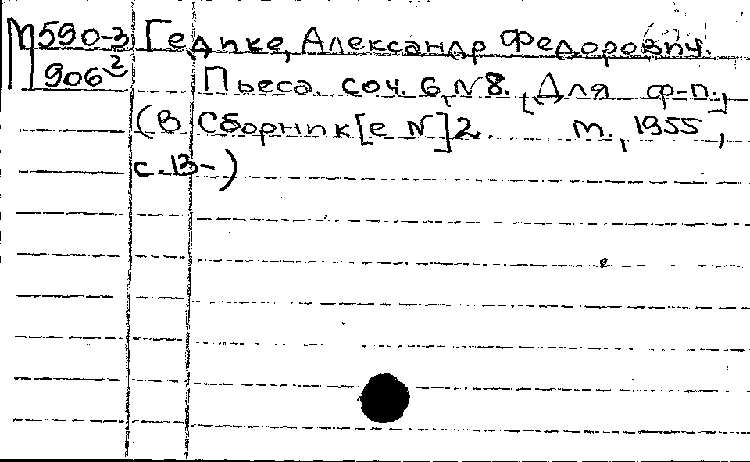 М590-3 Гедике, Александр Федорович.
906² Пьеса. соч. 6, N8. [Для ф-п.],
(В Сборник[е N]2. М., 1955,
с.13-)